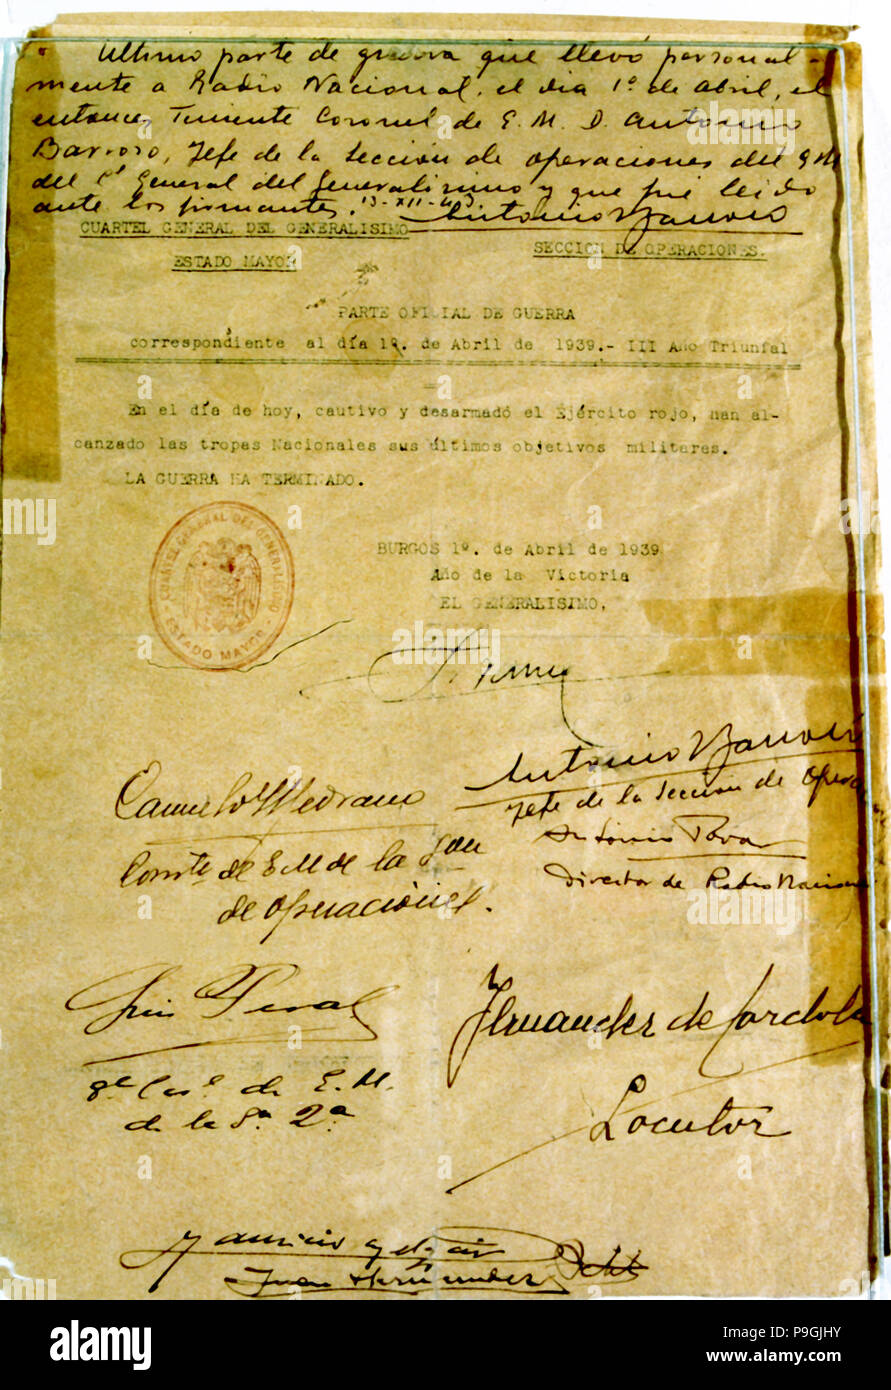 Ultimo parte de guerra que llevó personal-
mente a Radio Nacional, el dia 1º de abril, el
entonces Teniente Coronel de E. M. D. Antonio
Barroso, Jefe de la Sección de operaciones del E.M.
del C. General del Generalisimo y que fué leido
ante los firmantes. 13-XII-43. Antonio Barroso
CUARTEL GENERAL DEL GENERALISIMO
SECCION DE OPERACIONES.
ESTADO MAYOR
PARTE OFICIAL DE GUERRA
correspondiente al día 1º. de Abril de 1939.- III Año Triunfal
En el día de hoy, cautivo y desarmadó el Ejército rojo, han al-
canzado las tropas Nacionales sus últimos objetivos militares.
LA GUERRA HA TERMINADO.
CUARTEL GENERAL DEL GENERALISIMO
ESTADO MAYOR
BURGOS 1º. de Abril de 1939
Año de la Victoria
EL GENERALISIMO,
Antonio Barroso
Jefe de la Sección de Opera
Camilo Medrano
Comte de E M de la Son
de Operaciones.
Antonio Tovar
Director de Radio Nacional
Luis Peral
de E. M.
de la S.ª 2.ª
Fernandez de Cordoba
Locutor
Juan Hernandez
alamy
Image ID: P9GJHY
www.alamy.com